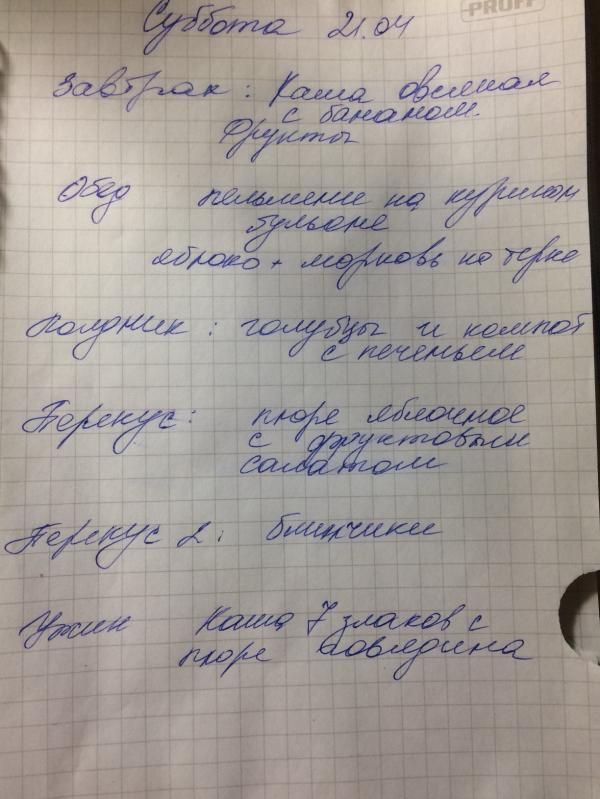 PROFF
Суббота 21.04
Завтрак: Каша овсяная
с бананом.
Фрукты
Обед пельмени на курином
бульоне
яблоко + морковь на терке
Полдник: голубцы и компот
с печеньем
Перекус: пюре яблочное
с фруктовым
салатом
Перекус 2: блинчики
Ужин Каша 7 злаков с
пюре говядина